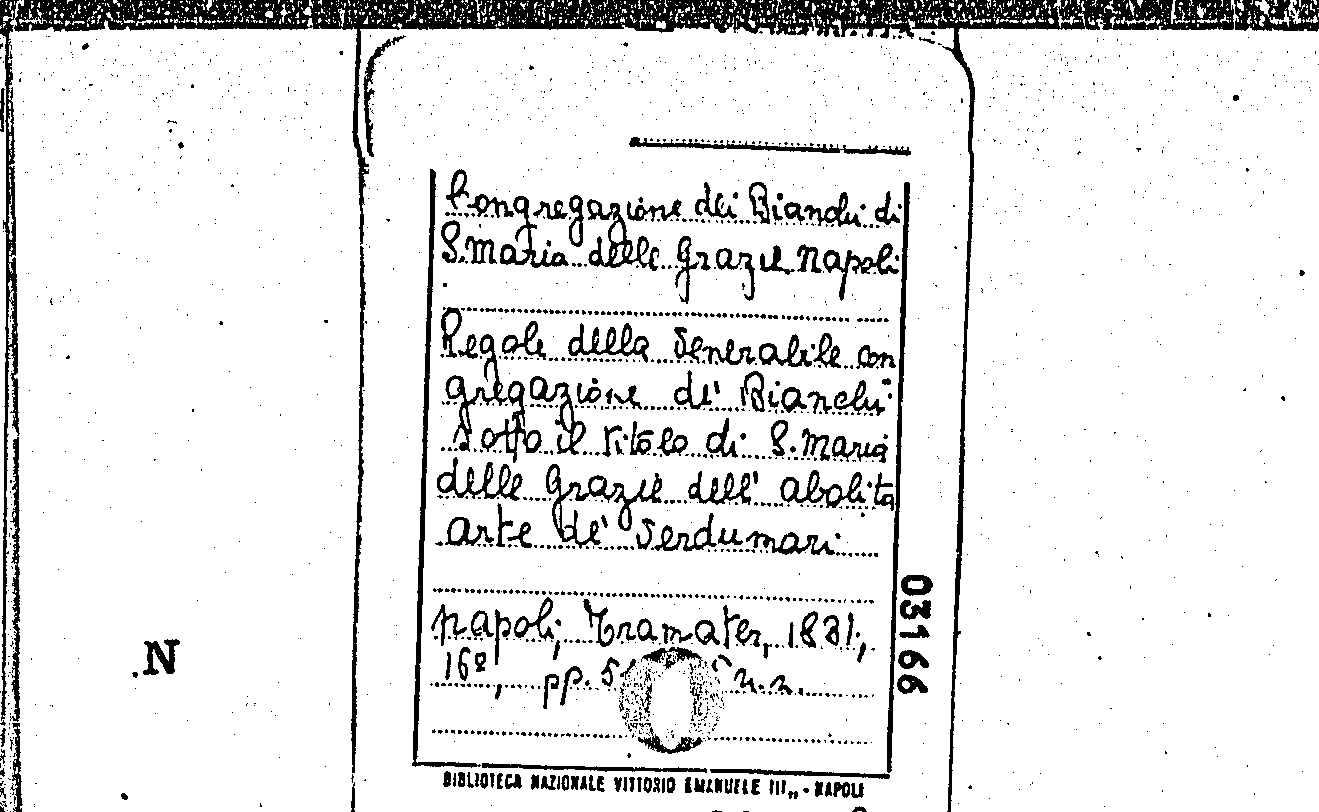 Congregazione dei Bianchi di
S. Maria delle Grazie Napoli
Regole della Venerabile con
gregazione de' Bianchi
sotto il titolo di S. Maria
delle Grazie dell' abolita
arte de' Verdumari
Napoli, Tramater, 1831,
16º, pp. n.n.
03166
N
BIBLIOTECA NAZIONALE VITTORIO EMANUELE III„ - NAPOLI